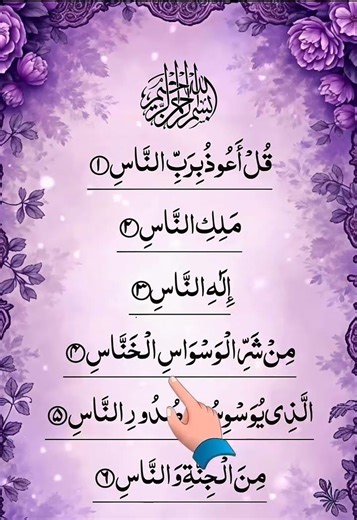 بسم الله الرحمن الرحيم
قُلْ أَعُوذُ بِرَبِّ النَّاسِ ۱
مَلِكِ النَّاسِ ۲
إِلَٰهِ النَّاسِ ۳
مِنْ شَرِّ الْوَسْوَاسِ الْخَنَّاسِ ۴
الَّذِى يُوَسْوِسُ صُدُورِ النَّاسِ ۵
مِنَ الْجِنَّةِ وَالنَّاسِ ۶